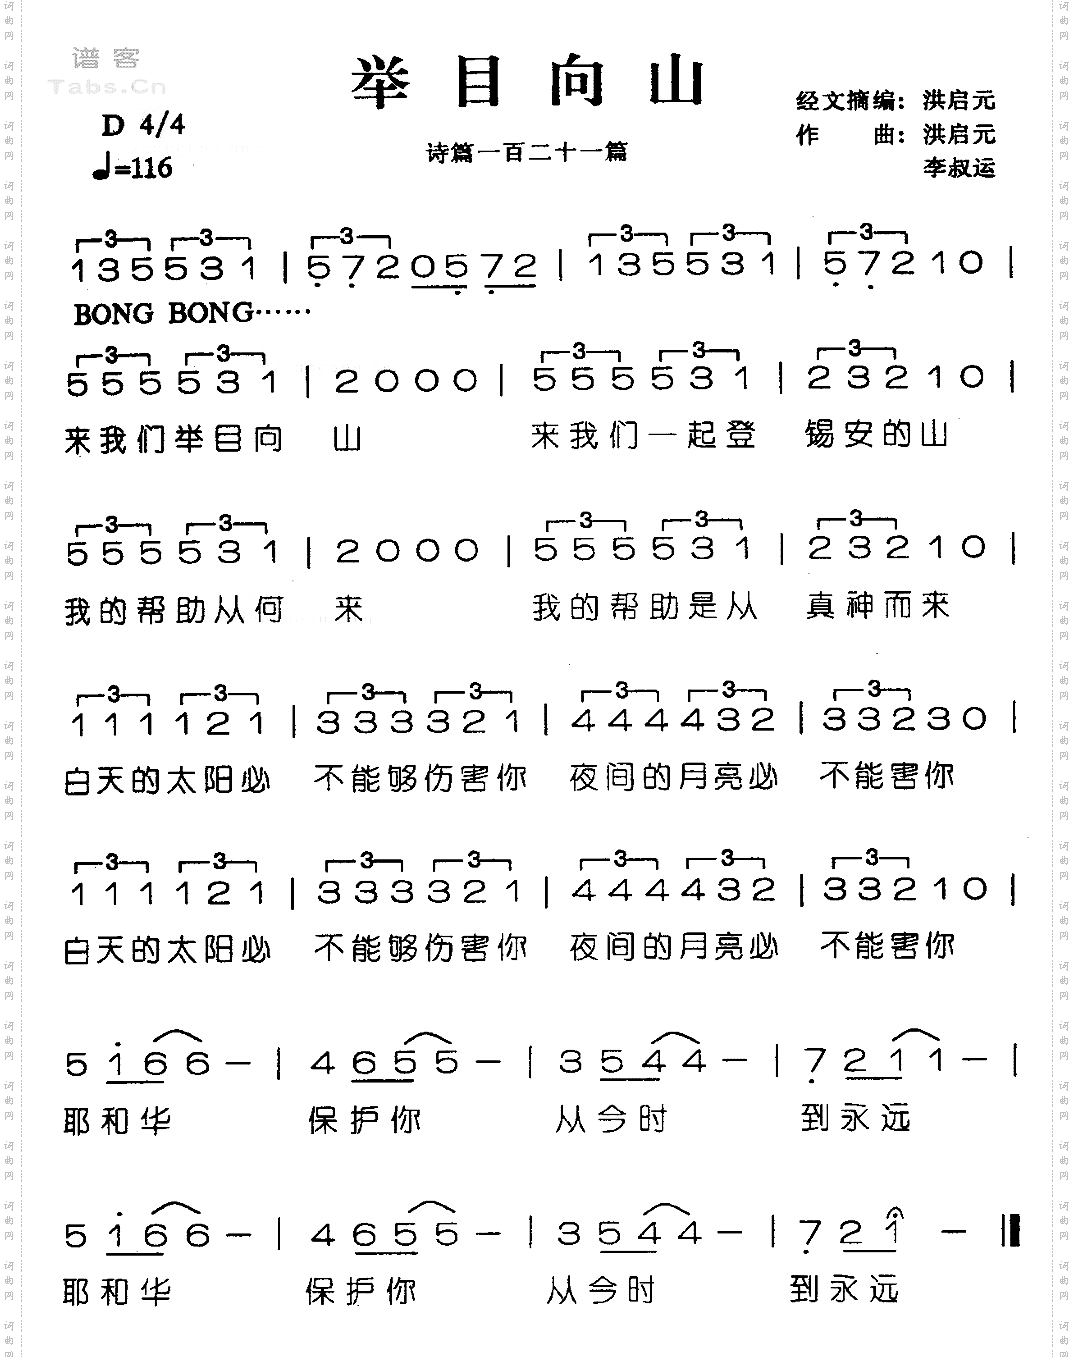 谱客
Tabs.Cn
举目向山
经文摘编：洪启元
D 4/4
作 曲：洪启元
诗篇一百二十一篇
♩=116
李叔运
3 3 3 3 3 3
1 3 5 5 3 1 | 5 7 2 0 5 7 2 | 1 3 5 5 3 1 | 5 7 2 1 0 |
BONG BONG……
3 3 3 3 3
5 5 5 5 3 1 | 2 0 0 0 | 5 5 5 5 3 1 | 2 3 2 1 0 |
来我们举目向 山 来我们一起登 锡安的山
3 3 3 3 3
5 5 5 5 3 1 | 2 0 0 0 | 5 5 5 5 3 1 | 2 3 2 1 0 |
我的帮助从何 来 我的帮助是从 真神而来
3 3 3 3 3 3 3
1 1 1 1 2 1 | 3 3 3 3 2 1 | 4 4 4 4 3 2 | 3 3 2 3 0 |
白天的太阳必 不能够伤害你 夜间的月亮必 不能害你
3 3 3 3 3 3 3
1 1 1 1 2 1 | 3 3 3 3 2 1 | 4 4 4 4 3 2 | 3 3 2 1 0 |
白天的太阳必 不能够伤害你 夜间的月亮必 不能害你
5 1 6 6 – | 4 6 5 5 – | 3 5 4 4 – | 7 2 1 1 – |
耶和华 保护你 从今时 到永远
5 1 6 6 – | 4 6 5 5 – | 3 5 4 4 – | 7 2 1 – ‖
耶和华 保护你 从今时 到永远